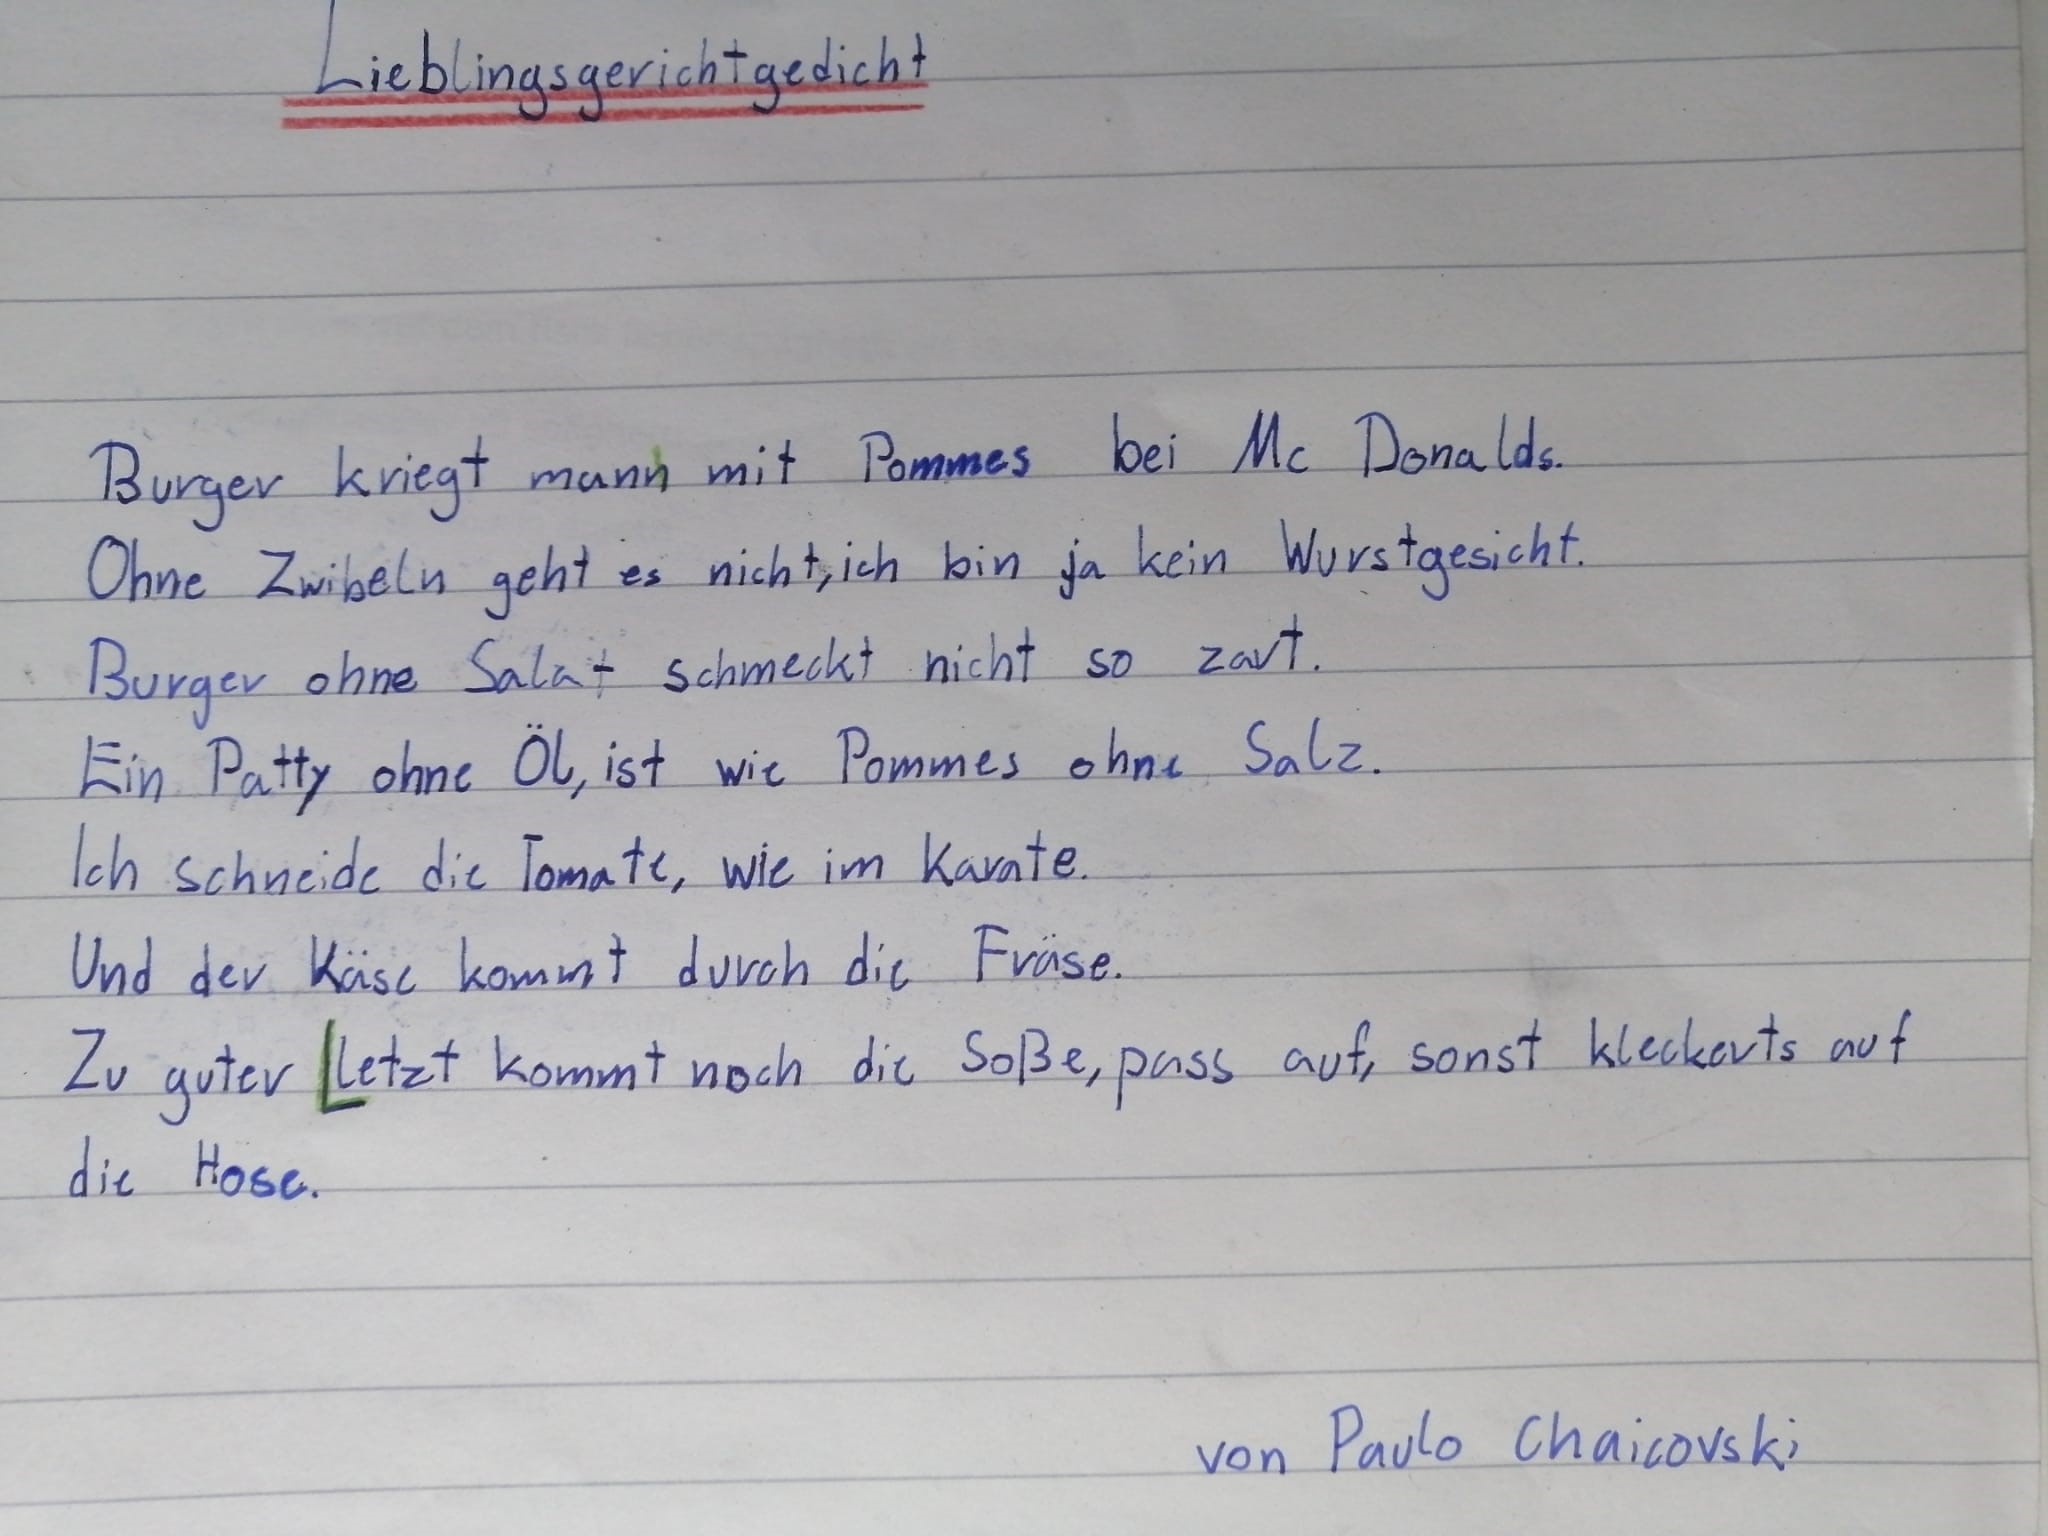 Lieblingsgerichtgedicht
Burger kriegt mann mit Pommes bei Mc Donalds.
Ohne Zwibeln geht es nicht, ich bin ja kein Wurstgesicht.
Burger ohne Salat schmeckt nicht so zart.
Ein Patty ohne Öl, ist wie Pommes ohne Salz.
Ich schneide die Tomate, wie im Karate.
Und der Käse kommt durch die Fräse.
Zu guter Letzt kommt noch die Soße, pass auf, sonst kleckerts auf
die Hose.
von Paulo Chaicovski